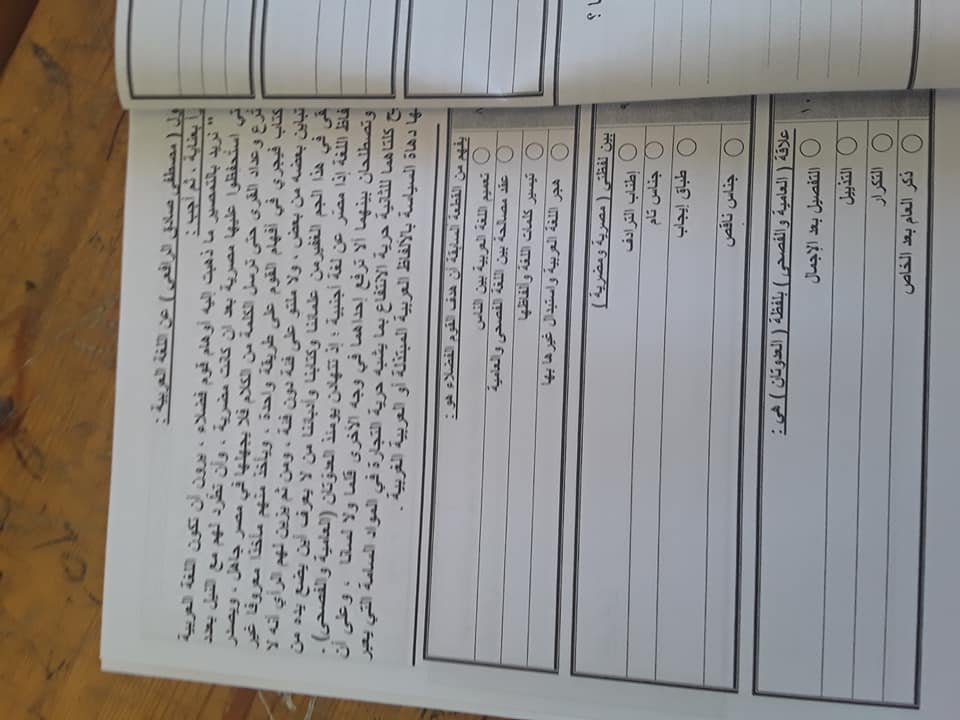 ول ( مصطفى صادق الرافعي ) عن اللغة العربية :
بعناية ، ثم أجب :
" نريد بالتمصير ما ذهبت إليه أوهام قوم فضلاء ، يرون أن تكون اللغة العربية
استحفظوا عليها مصرية بعد ان كانت مضرية ، وأن تطرد لهم مع النيل بعدد
وعداد القرى حتى ترسل الكلمة من الكلام فلا يجهلها في مصر جاهل ، ويصدر
كتاب فيجرى في أفهام القوم على طريقة واحدة ، ويأخذ منهم مأخذا معروفا غير
متباين بعضه من بعض ، ولا ملتو على فئة دون فئة ، ومن ثم يزين لهم الرأي أنه لا
في هذا الجم الغفير من علمائنا وكتابنا وأدبائنا من لا يعرف أين يضع يده من
ألفاظ اللغة إذا مصر عن لغة أجنبية ؛ إذ تنتهيان يومئذ العدوتان (العامية والفصحى) .
وتصطلحان بينهما ألا ترفع إحداهما في وجه الأخرى قلما ولا لسانا ، وعلى أن
كلتاهما للثانية حرية الانتفاع بما يشبه حرية التجارة في المواد السامة التي يعبر
دهاة السياسة بالألفاظ العربية المبتذلة أو العربية الغريبة .
٨
يفهم من القطعة السابقة أن هدف القوم الفضلاء هو :
تعميم اللغة العربية بين الناس
عقد مصالحة بين اللغة الفصحى والعامية
تيسير كلمات اللغة وألفاظها
هجر اللغة العربية واستبدال غيرها بها
٩
بين لفظتى ( مصرية ومضرية )
إطناب الترادف
جناس تام
طباق إيجاب
جناس ناقص
١٠
علاقة ( العامية والفصحى ) بلفظة ( العدوتان ) هى :
التفصيل بعد الإجمال
التذييل
التكرار
ذكر العام بعد الخاص